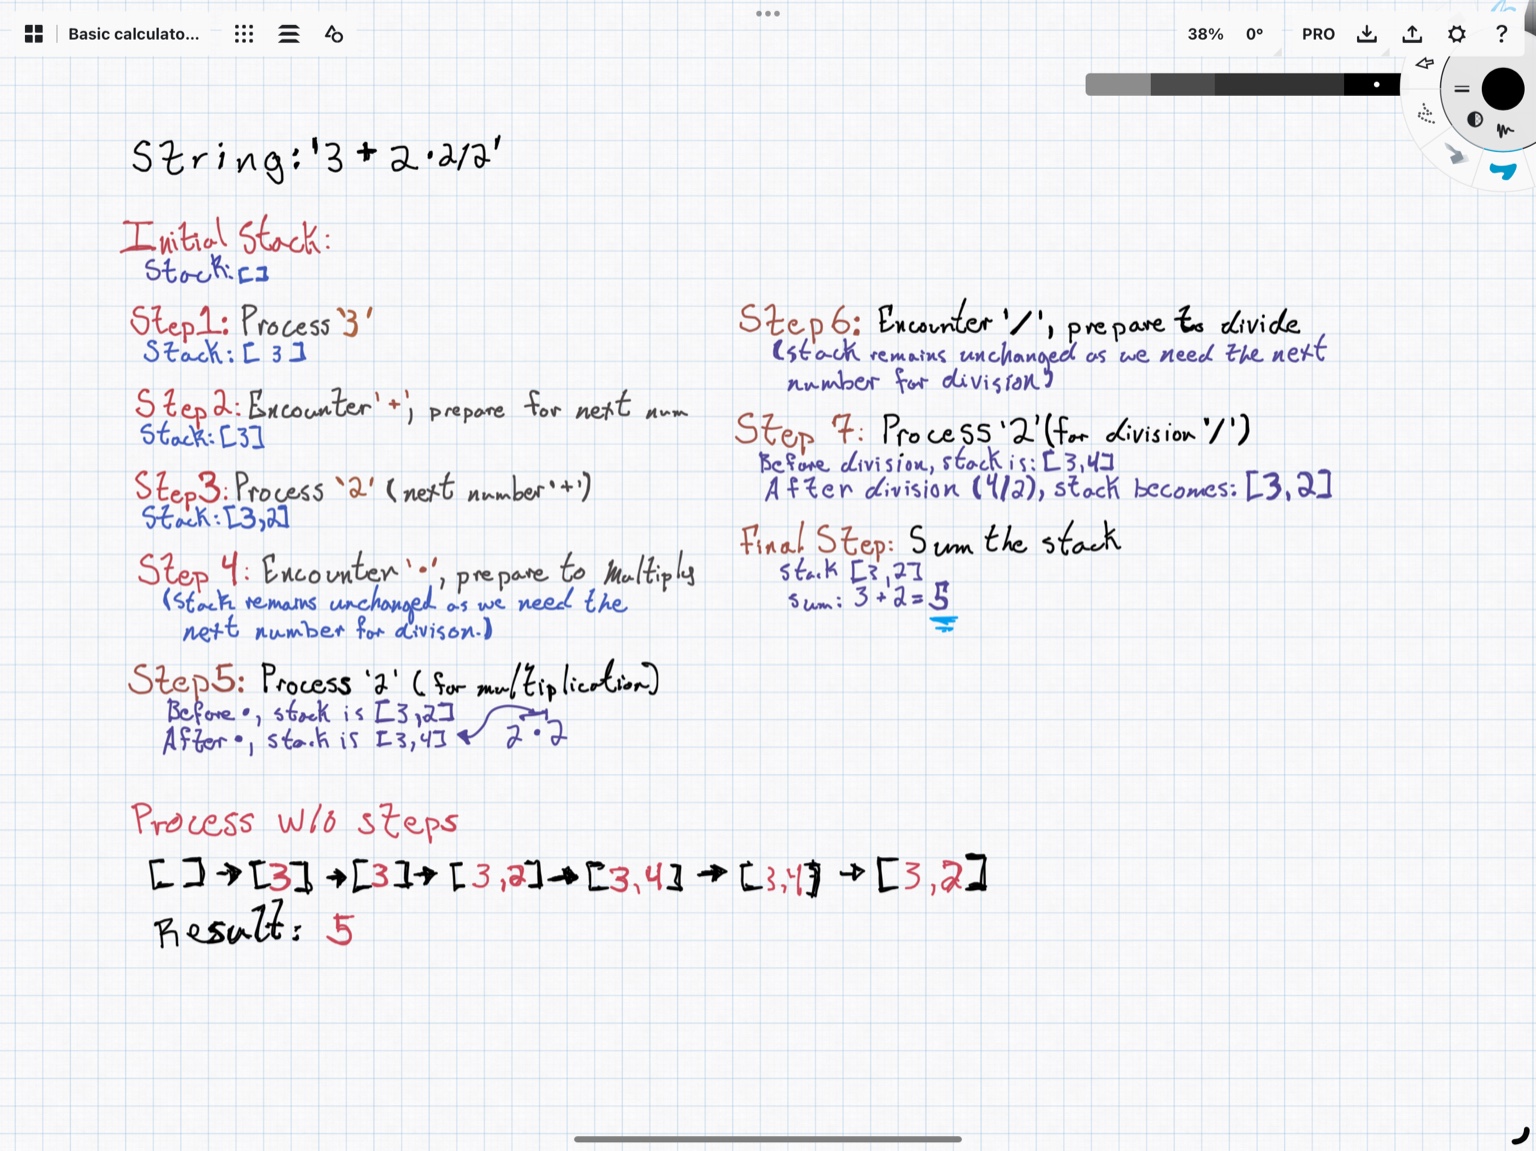 Basic calculato...
38%
0°
PRO
?
String: '3 + 2 · 2/2'
Initial Stack:
Stack: []
Step1: Process '3'
Stack: [ 3 ]
Step2: Encounter '+', prepare for next num
Stack: [3]
Step3: Process '2' (next number '+')
Stack: [3,2]
Step 4: Encounter '·', prepare to Multiply
(Stack remains unchanged as we need the
next number for divison.)
Step5: Process '2' (for multiplication)
Before ·, stack is [3,2]
After ·, stack is [3,4]
2 · 2
Step6: Encounter '/', prepare to divide
(stack remains unchanged as we need the next
number for division)
Step 7: Process '2' (for division '/')
Before division, stack is: [3,4]
After division (4/2), stack becomes: [3,2]
Final Step: Sum the stack
stack [3,2]
sum: 3 + 2 = 5
Process w/o steps
[ ] → [3] → [3] → [3,2] → [3,4] → [3,4] → [3,2]
Result: 5